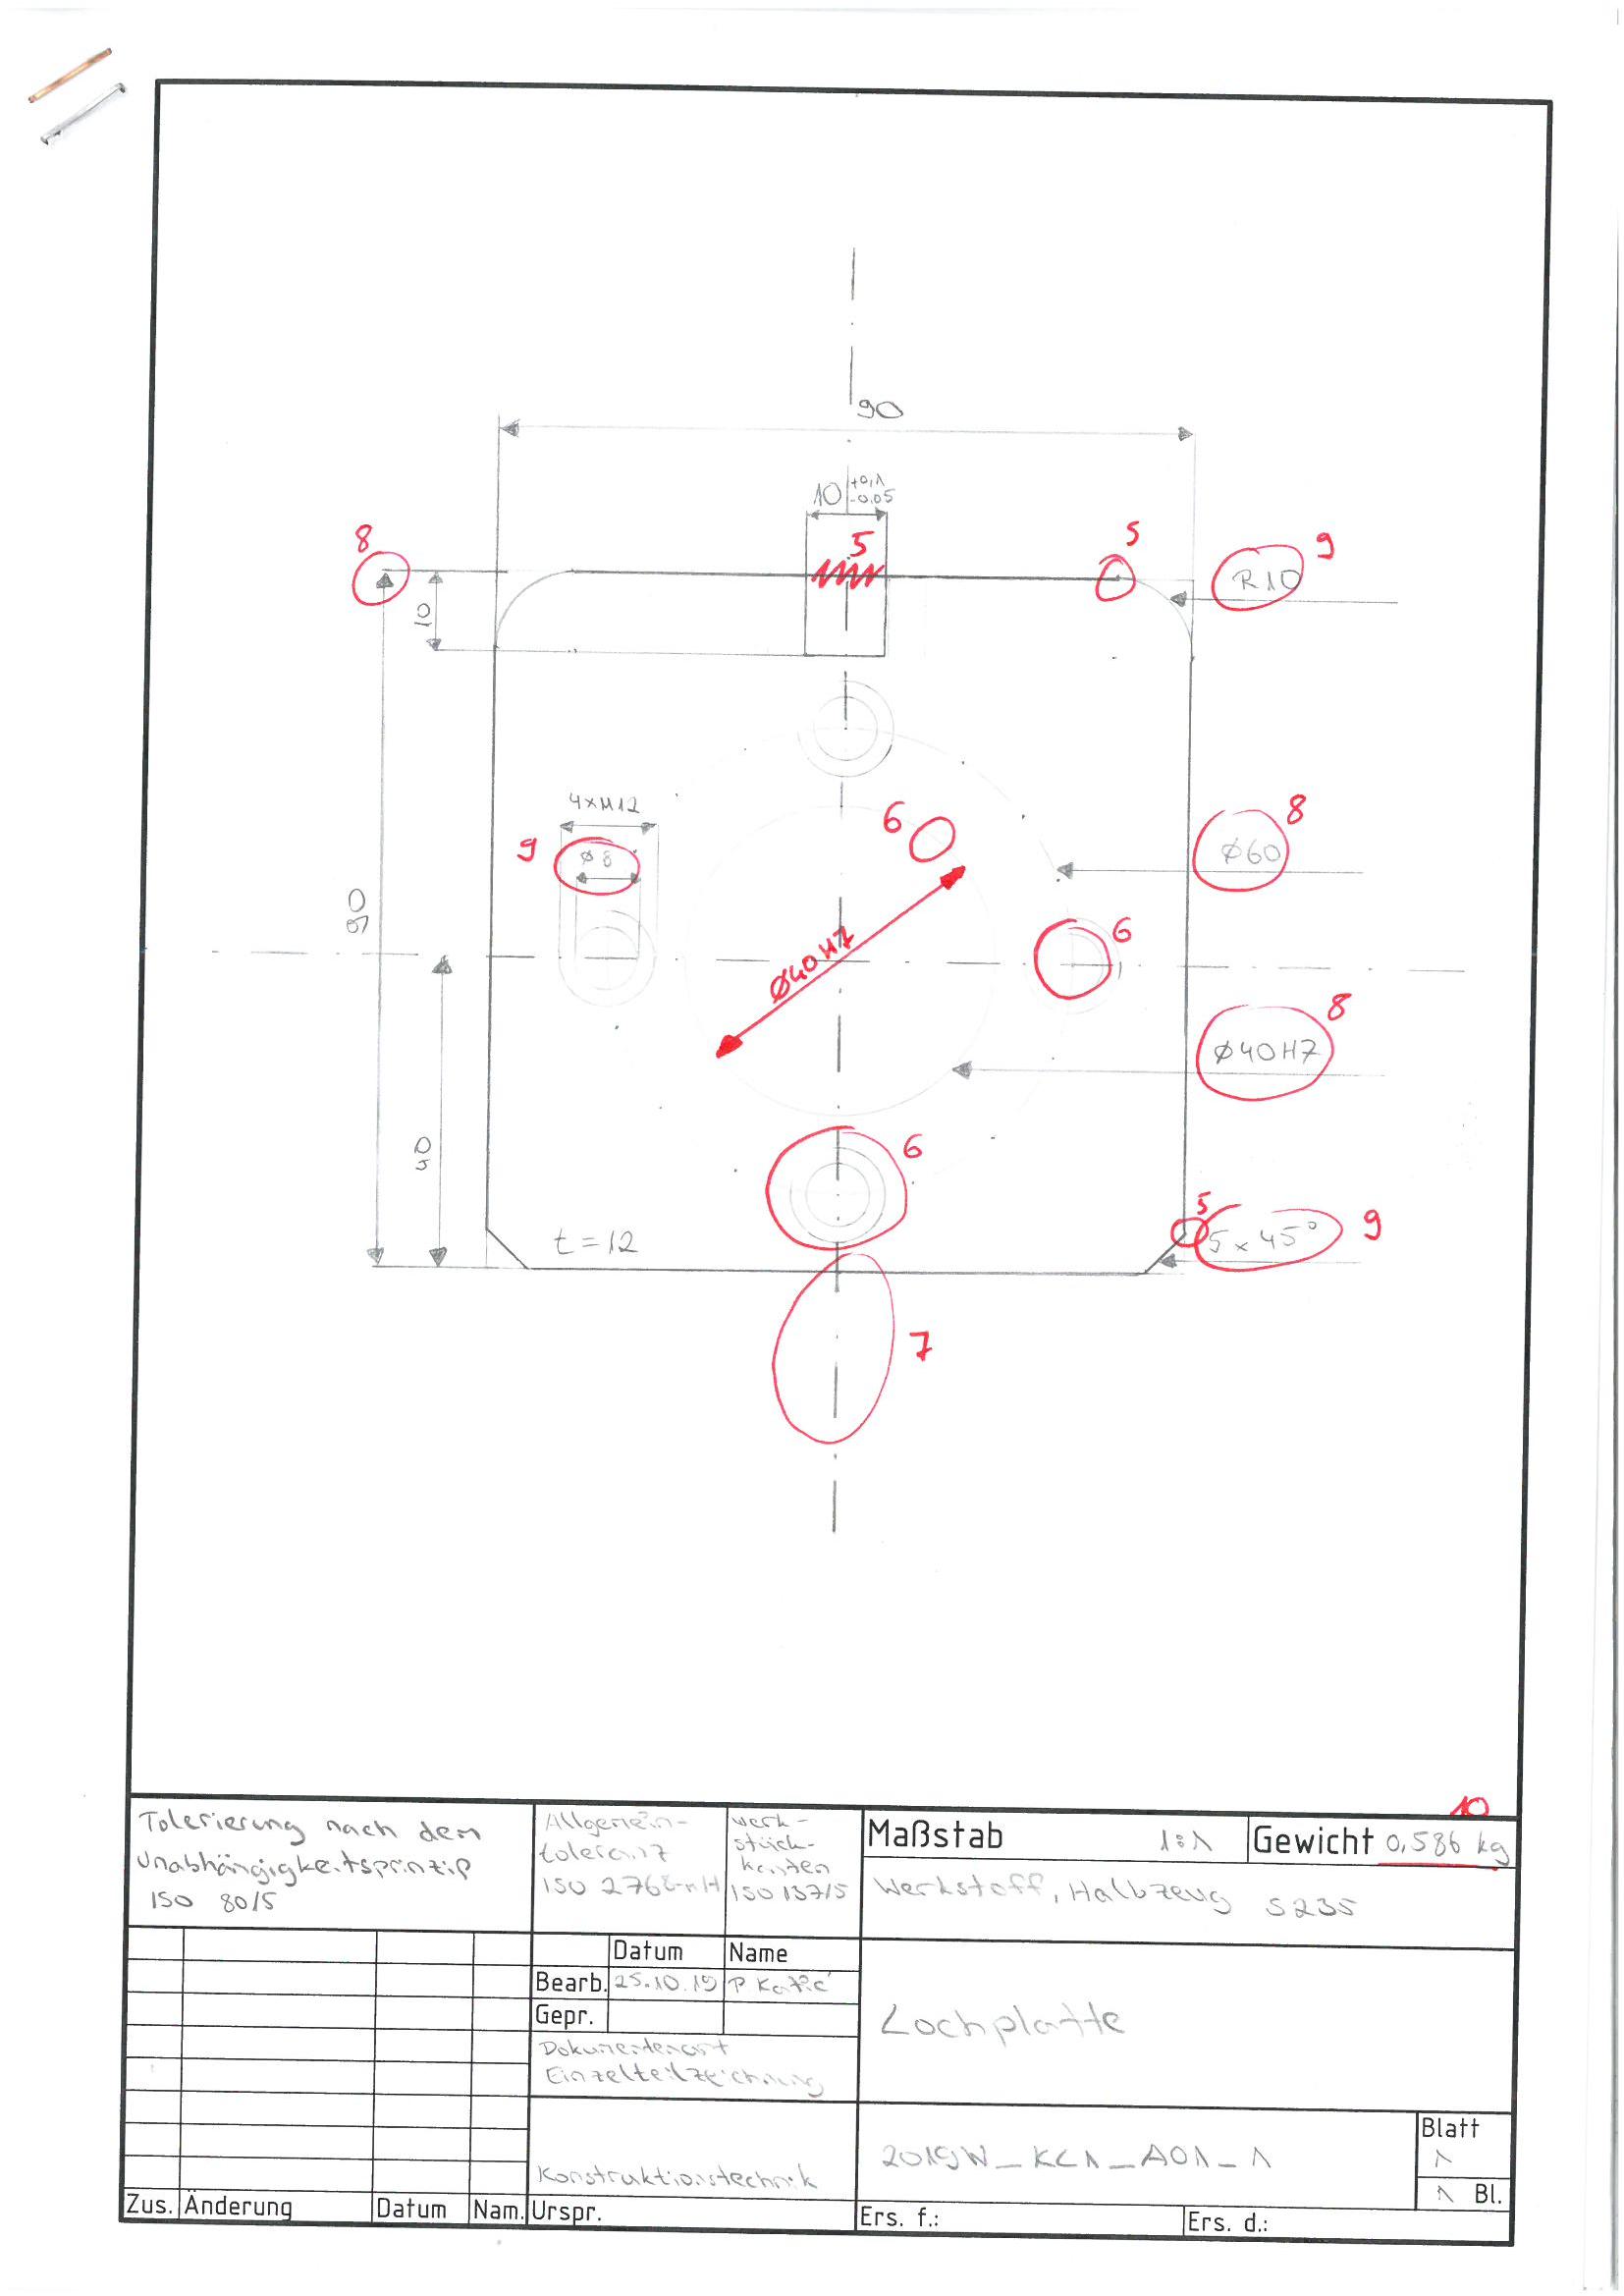 90
10 +0,1 -0,05
5
8
5
9
R10
10
4xM12
9
Ø8
6
8
Ø60
90
6
Ø40H7
8
Ø40H7
6
5
5x45°
9
t=12
7
10
Tolerierung nach dem
Unabhängigkeitsprinzip
ISO 8015
Allgemein-
toleranz
ISO 2768-mH
Werk-
stück-
kanten
ISO 13715
Maßstab 1:1
Gewicht 0,586 kg
Werkstoff, Halbzeug S235
Datum Name
Bearb. 25.10.19 P Katić
Gepr.
Dokumentenart
Einzelteilzeichnung
Lochplatte
Konstruktionstechnik
2019W_KL1_A01_1
Blatt
1
1 Bl.
Zus. Änderung Datum Nam. Urspr. Ers. f.: Ers. d.: